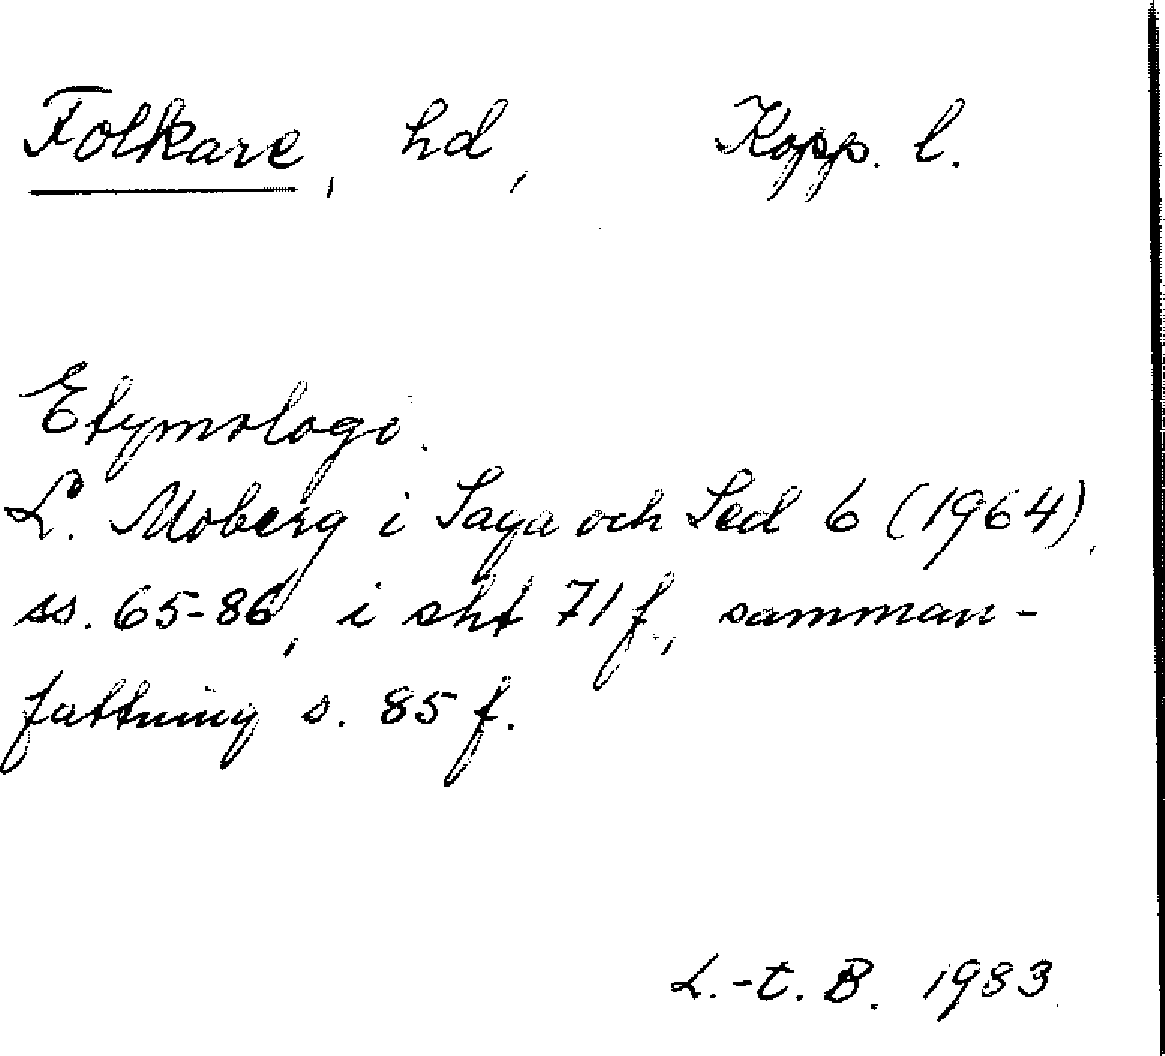 Folkare, hd, Kopp. l.
Etymologi.
L. Moberg i Saga och Sed 6 (1964),
ss. 65-86, i sht 71 f., samman-
fattning s. 85 f.
L.-t. B. 1983